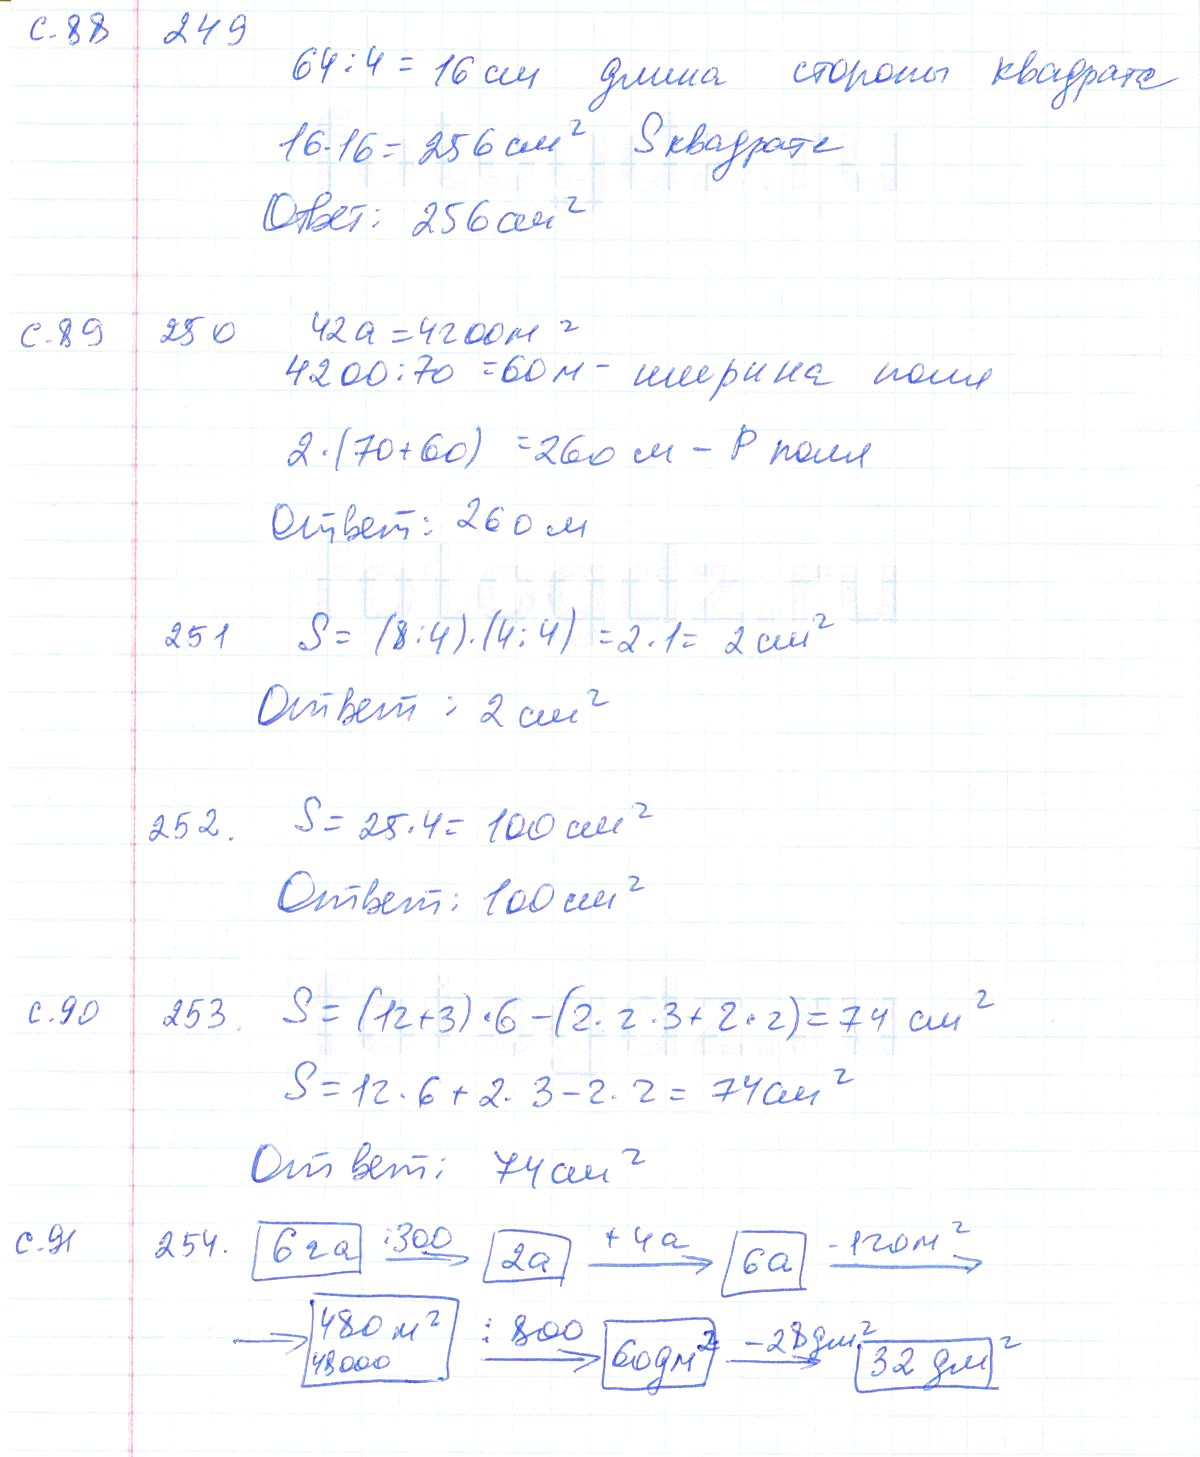 с.88 249
64:4 = 16 см длина стороны квадрата
16·16 = 256 см² S квадрата
Ответ: 256 см²
с.89 250 42а = 4200 м²
4200:70 = 60 м - ширина поля
2·(70+60) = 260 м - P поля
Ответ: 260 м
fotogdz.ru
251 S = (8:4)·(4:4) = 2·1 = 2 см²
Ответ: 2 см²
252. S = 25·4 = 100 см²
Ответ: 100 см²
с.90 253. S = (12+3)·6 - (2·2·3+2·2) = 74 см²
S = 12·6 + 2·3 - 2·2 = 74 см²
Ответ: 74 см²
с.91 254. 6 га :300 2а +4а 6а -120 м²
480 м² :800 60 дм² -28 дм² 32 дм²
48000